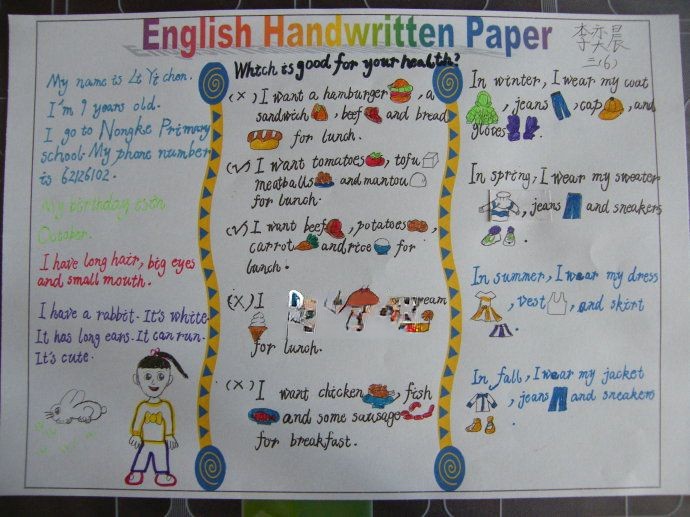 English Handwritten Paper
李亦晨
三(6)
My name is Li Yi chen.
I'm 9 years old.
I go to Nongke Primary
school. My phone number
is 62126102.
My birthday is 5th
October.
I have long hair, big eyes
and small mouth.
I have a rabbit. It's white.
It has long ears. It can run.
It's cute.
Which is good for your health?
(×) I want a hamburger, a
sandwich, beef and bread
for lunch.
(√) I want tomatoes, tofu
meatballs and mantou
for lunch.
(√) I want beef, potatoes,
carrot and rice for
lunch.
(×) I
for lunch.
(×) I want chicken, fish
and some sausage
for breakfast.
In winter, I wear my coat
, jeans, cap, and
gloves.
In spring, I wear my sweater
, jeans and sneakers
.
In summer, I wear my dress
, vest, and skirt
.
In fall, I wear my jacket
, jeans and sneakers
.